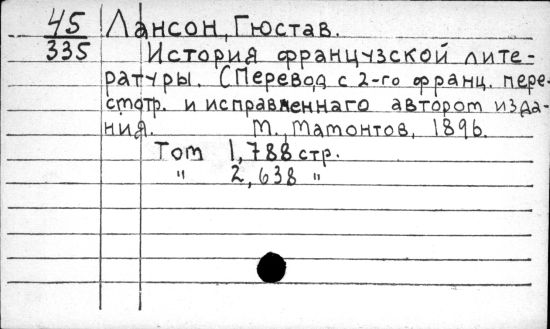 45 Лансон, Гюстав.
335 История французской лите-
ратуры. (Перевод с 2-го франц. пере-
смотр. и исправленнаго автором изда-
ния. М., Мамонтов, 1896.
Том 1, 788 стр.
" 2, 638 "